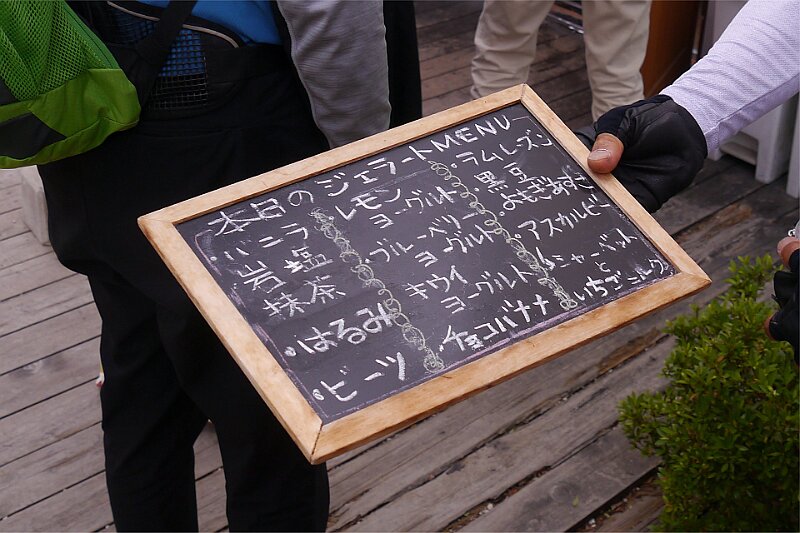 本日のジェラートMENU
・バニラ
・岩塩
・抹茶
・はるみ
・ビーツ
・レモン
ヨーグルト
・ブルーベリー
ヨーグルト
・キウイ
ヨーグルト
・チョコバナナ
・ラムレーズン
・黒豆
・よもぎあずき
・アスカルビー
シャーベット
と
いちごミルク